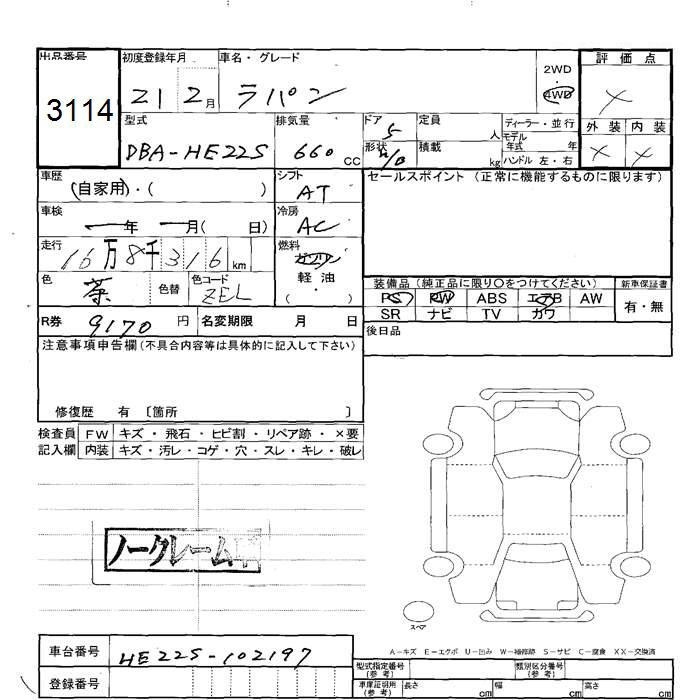 出品番号 3114
初度登録年月 21 2月
車名・グレード ラパン
2WD・4WD
評価点 ×
外装 × 内装 ×
型式 DBA-HE22S
排気量 660 cc
ドア 5
形状 H/B
定員 人
積載 kg
ディーラー・並行
モデル年式 年
ハンドル 左・右
車歴 (自家用)・( )
シフト AT
セールスポイント (正常に機能するものに限ります)
車検 ー年 ー月( 日)
冷房 AC
走行 16万8千316km
燃料 ガソリン
軽油
・( )
色 茶 色替
色コード ZEL
装備品(純正品に限り○をつけてください)
新車保証書
PS PW ABS エアB AW
有・無
SR ナビ TV カワ
R券 9170 円 名変期限 月 日
後日品
注意事項申告欄(不具合内容等は具体的に記入して下さい)
修復歴 有 〔箇所 〕
検査員記入欄
FW キズ・飛石・ヒビ割・リペア跡・×要
内装 キズ・汚レ・コゲ・穴・スレ・キレ・破レ
ノークレーム
スペア
A-キズ E-エクボ U-凹み W-補修跡 S-サビ C-腐食 XX-交換済
車台番号 HE22S-102197
登録番号
型式指定番号(参考)
類別区分番号(参考)
車庫証明用(参考) 長さ cm 幅 cm 高さ cm